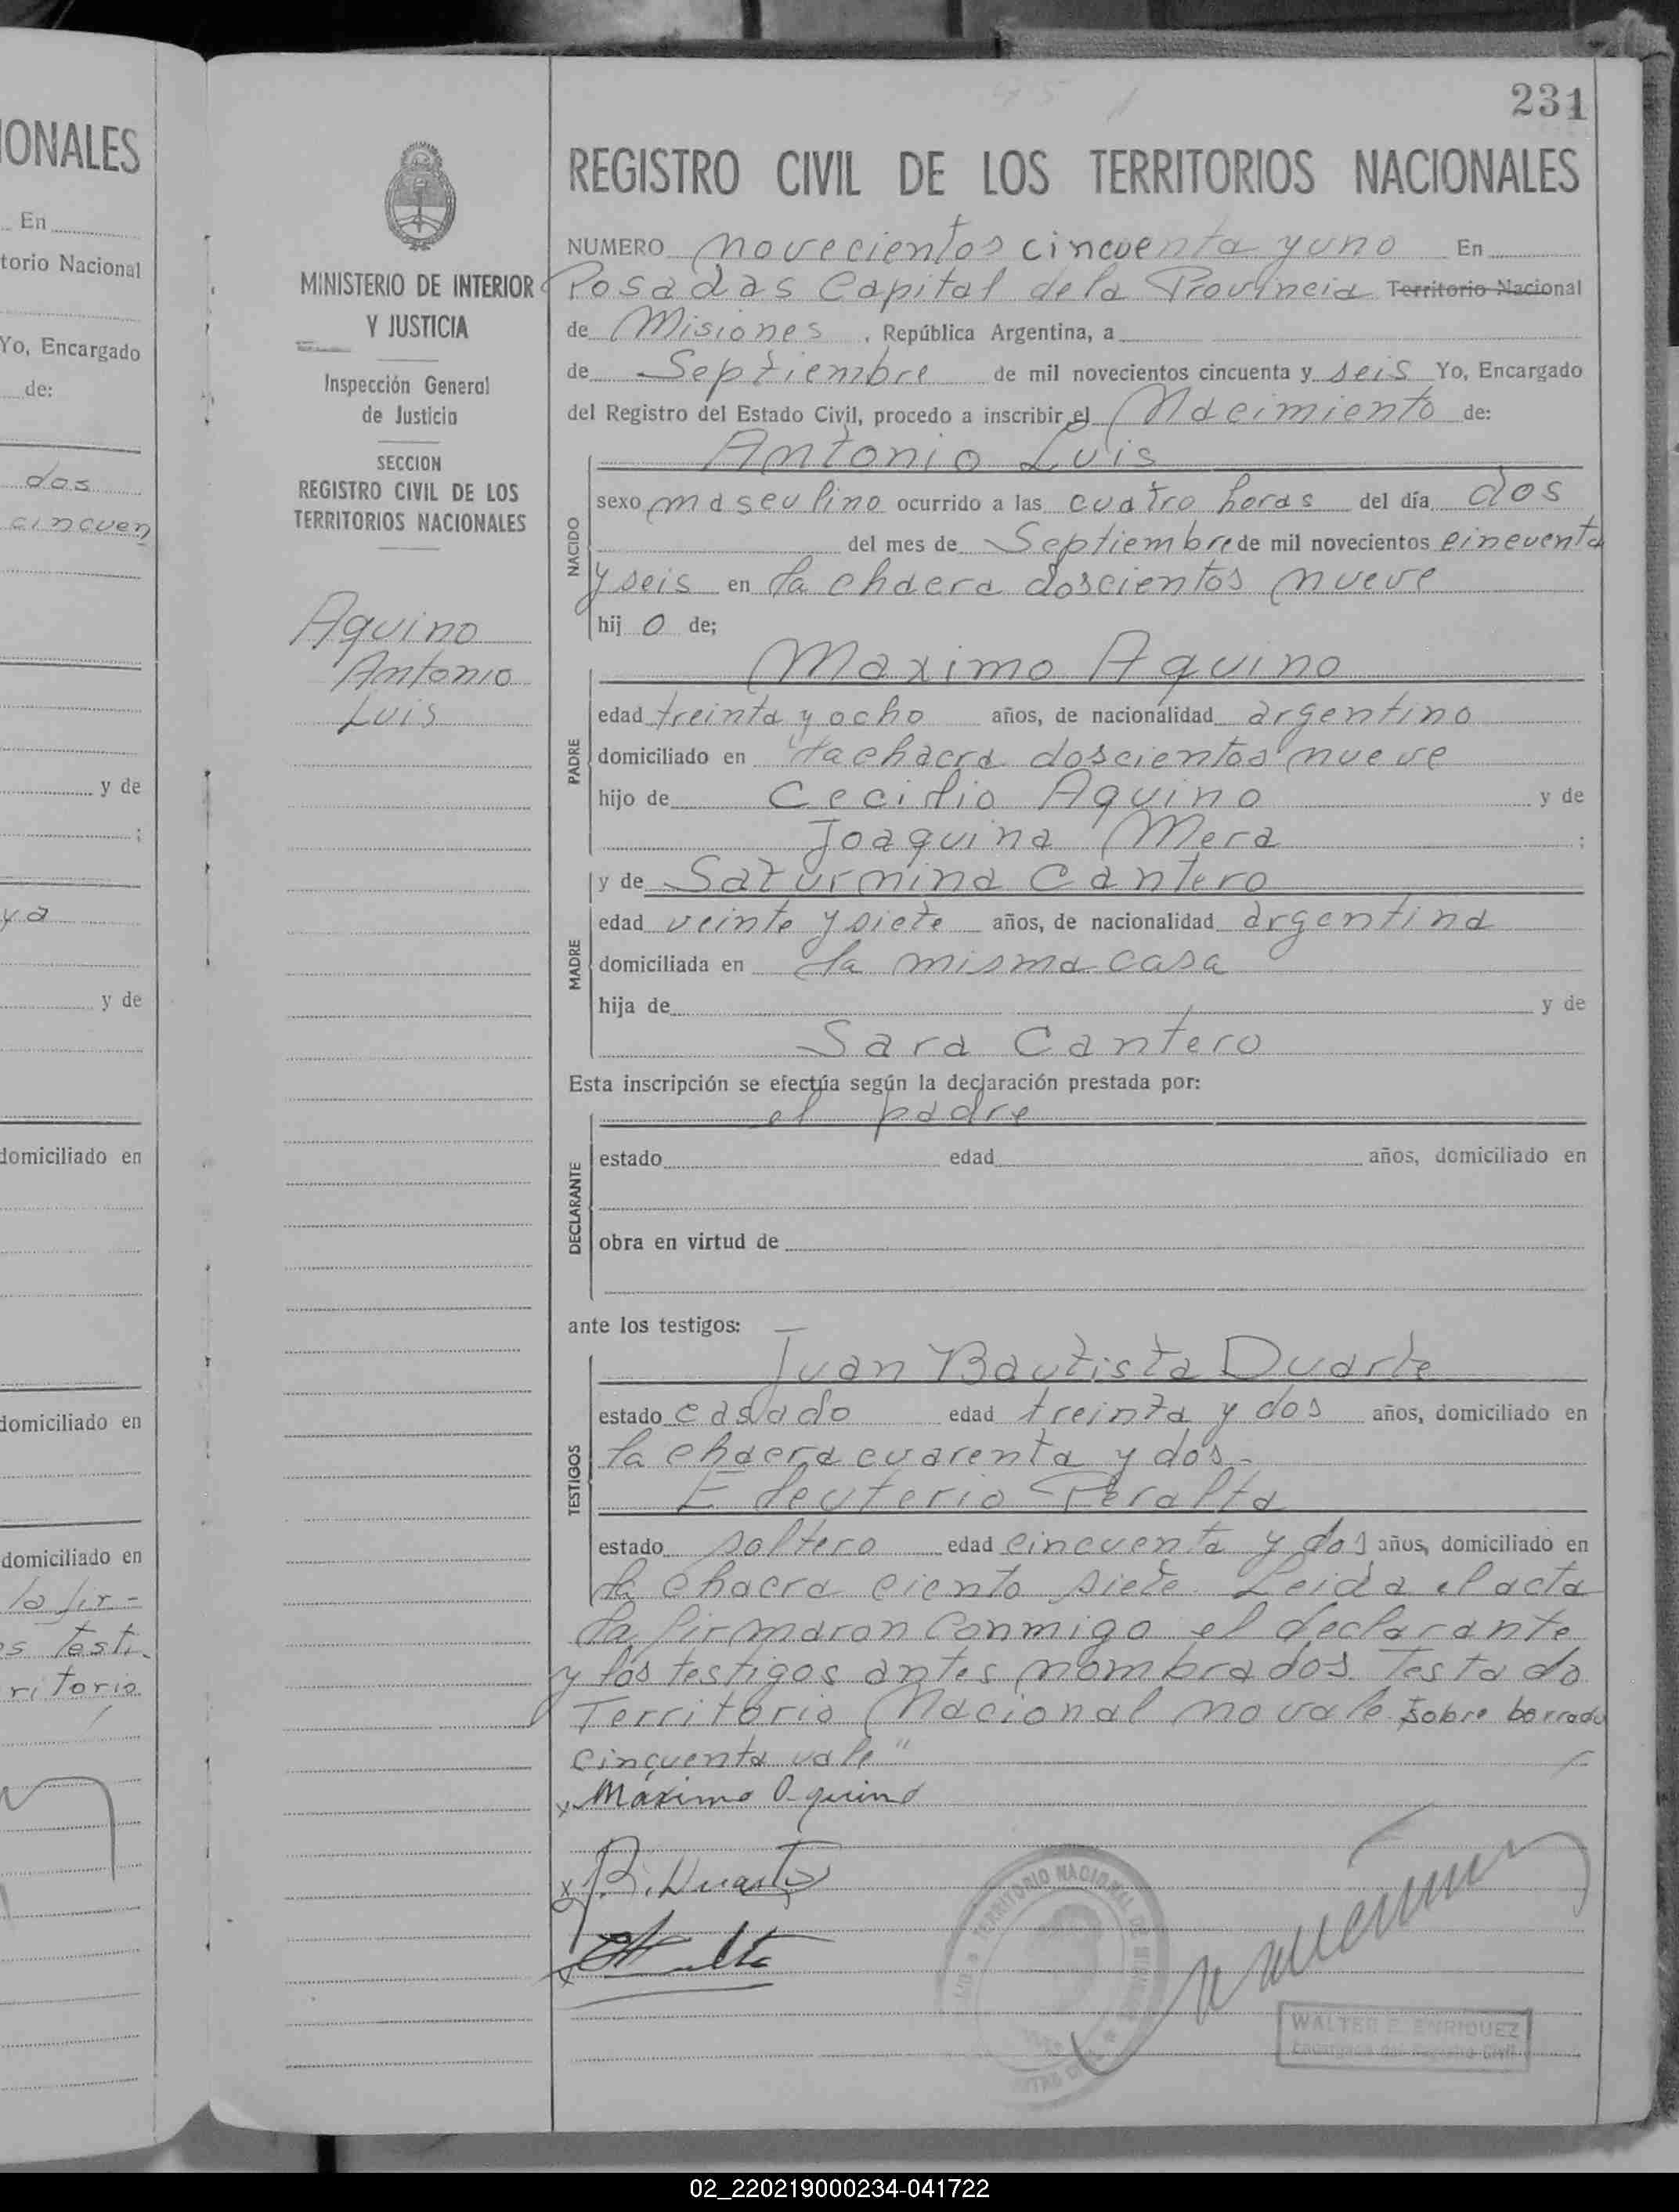 IONALES
En
torio Nacional
Yo, Encargado
de:
dos
cincuen
y de
ya
y de
domiciliado en
domiciliado en
domiciliado en
la fir-
s testi-
ritorio
MINISTERIO DE INTERIOR
Y JUSTICIA
Inspección General
de Justicia
SECCION
REGISTRO CIVIL DE LOS
TERRITORIOS NACIONALES
Aquino
Antonio
Luis
231
REGISTRO CIVIL DE LOS TERRITORIOS NACIONALES
NUMERO novecientos cincuenta y uno En
Posadas Capital de la Provincia Territorio Nacional
de Misiones, República Argentina, a
de Septiembre de mil novecientos cincuenta y seis Yo, Encargado
del Registro del Estado Civil, procedo a inscribir el Nacimiento de:
Antonio Luis
NACIDO
sexo masculino ocurrido a las cuatro horas del día dos
del mes de Septiembre de mil novecientos cincuenta
y seis en la chacra doscientos nueve
hij o de;
Maximo Aquino
PADRE
edad treinta y ocho años, de nacionalidad argentino
domiciliado en la chacra doscientos nueve
hijo de Cecilio Aquino y de
Joaquina Mera ;
y de Saturnina Cantero
MADRE
edad veinte y siete años, de nacionalidad argentina
domiciliada en la misma casa
hija de y de
Sara Cantero
Esta inscripción se efectúa según la declaración prestada por:
el padre
DECLARANTE
estado edad años, domiciliado en
obra en virtud de
ante los testigos:
Juan Bautista Duarte
TESTIGOS
estado casado edad treinta y dos años, domiciliado en
la chacra cuarenta y dos-
Eleuterio Peralta
estado soltero edad cincuenta y dos años, domiciliado en
la chacra ciento siete. Leida el acta
la firmaron conmigo el declarante
y los testigos antes nombrados. Testado
Territorio Nacional no vale. Sobre borrado
cincuenta vale"
x Máximo Aquino
x J. B. Duarte
TERRITORIO NACIONAL DE
WALTER E. ENRIQUEZ
Encargado del Registro Civil
02_220219000234-041722